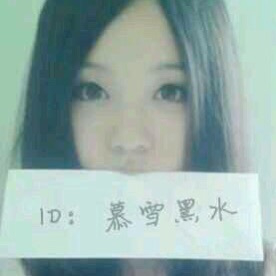 ID: 慕雪黑水